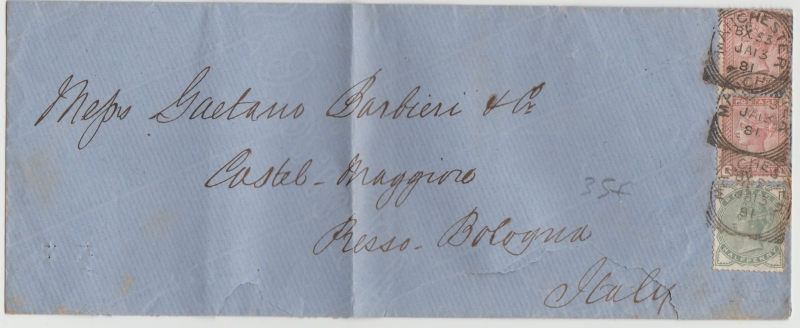 Messrs Gaetano Barbieri & Co.
Castel-Maggiore
Presso-Bologna
Italy
35£
MANCHESTER
BX 53
JA 13
81
MANCHESTER
JA 13
81
MANCHESTER
JA 13
81
HALFPENNY